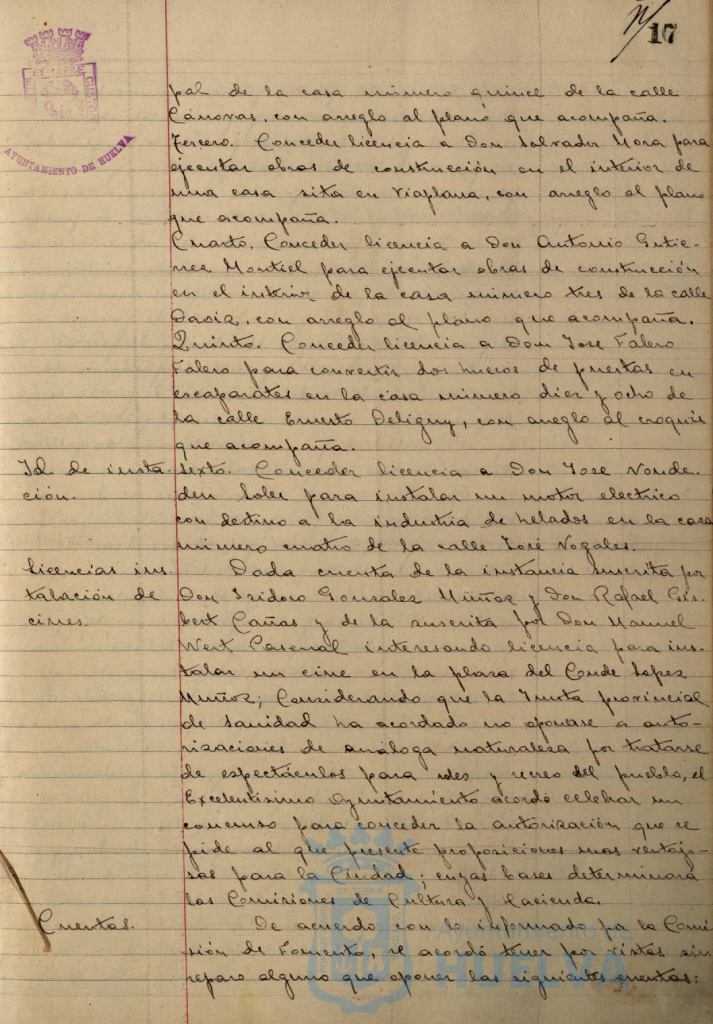 17
AYUNTAMIENTO DE HUELVA
pal de la casa número quince de la calle
Cánovas, con arreglo al plano que acompaña.
Tercero. Conceder licencia a Don Salvador Mora para
ejecutar obras de construcción en el interior de
una casa sita en Viaplana, con arreglo al plano
que acompaña.
Cuarto. Conceder licencia a Don Antonio Gutie-
rrez Montiel para ejecutar obras de construcción
en el interior de la casa número tres de la calle
Daoiz, con arreglo al plano que acompaña.
Quinto. Conceder licencia a Don José Falero
Falero para convertir dos huecos de puertas en
escaparates en la casa número diez y ocho de
la calle Ernesto Deligny, con arreglo al croquis
que acompaña.
Id. de insta-
ción.
Sexto. Conceder licencia a Don José
Soler para instalar un motor electrico
con destino a la industria de helados en la casa
número cuatro de la calle José Nogales.
Licencias ins-
talación de
cines.
Dada cuenta de la instancia suscrita por
Don Isidoro Gonzalez Muñoz y Don Rafael Gis-
bert Cañas y de la suscrita por Don Manuel
Wert interesando licencia para ins-
talar un cine en la plaza del Conde Lopez
Muñoz; Considerando que la Junta provincial
de Sanidad ha acordado no oponerse a auto-
rizaciones de análoga naturaleza por tratarse
de espectáculos para y recreo del pueblo, el
Excelentísimo Ayuntamiento acordó celebrar un
concurso para conceder la autorización que se
pide al que presente proposiciones mas ventajo-
sas para la Ciudad; cuyas bases determinará
las Comisiones de Cultura y Hacienda.
Cuentas.
De acuerdo con lo informado por la Comi-
sión de Fomento, se acordó tener por vistas sin
reparo alguno que oponer las siguientes cuentas:
Ayuntamiento
HUELVA